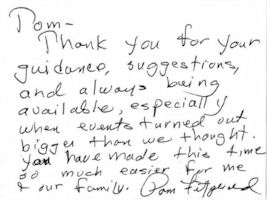 Dom-
Thank you for your
guidance, suggestions,
and always being
available, especially
when events turned out
bigger than we thought.
You have made this time
so much easier for me
& our family. Pam Fitzgerald